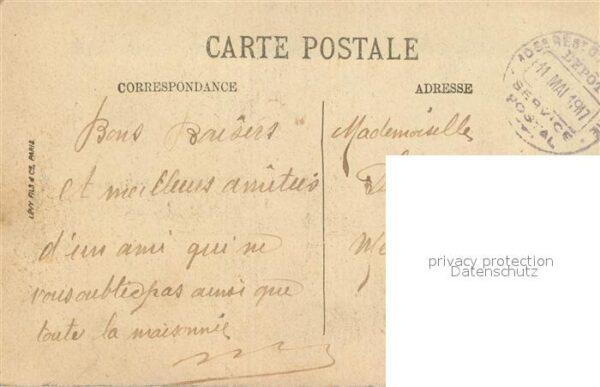 CARTE POSTALE
CORRESPONDANCE
ADRESSE
DÉPÔT
11 MAI 1917
SERVICE
POSTAL
Bons Baisers
et meilleurs amitiés
d'un ami qui ne
vous oublie pas ainsi que
toute la maisonnée
Mademoiselle
LÉVY FILS & CIE, PARIS
privacy protection
Datenschutz